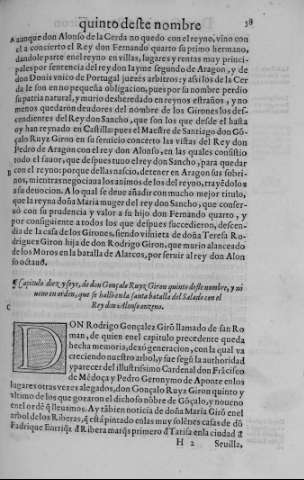 quinto deste nombre 58
A aunque don Alonso de la Cerda no quedo con el reyno, vino con
el a concierto el Rey don Fernando quarto su primo hermano,
dandole parte en el reyno en villas, lugares y rentas muy princi-
pales por sentencia del rey don Iayme segundo de Aragon, y de
don Donis vnico de Portugal juezes arbitros: y assi los de la Cer
da le son en no pequeña obligacion, pues por su nombre perdio
su patria natural, y murio desheredado en reynos estraños, y no
menos quedaron deudores del nombre de los Girones los des-
cendientes del Rey don Sancho, que son los que desde el hasta
oy han reynado en Castilla: pues el Maestre de Santiago don Gō-
çalo Ruyz Giron en su seruicio concerto las vistas del Rey don
Pedro de Aragon con el rey don Alonso, en las quales consistio
todo el fauor, que despues tuuo el rey don Sancho, para quedar
B con el reyno: porque dellas nascio, detener en Aragon sus sobri-
nos, mientras negociaua los animos de los del reyno, trayēdolos
a su deuocion. A lo qual se deue añadir con mucho mejor titulo,
que la reyna doña Maria muger del rey don Sancho, que conser-
uò con su prudencia y valor a su hijo don Fernando quarto, y
por consiguiente a todos los que despues succedieron, descen-
dia de la casa de los Girones, siendo visnieta de doña Teresa Ro-
driguez Giron hija de don Rodrigo Giron, que murio alanceado
de los Moros en la batalla de Alarcos, por seruir al rey don Alon
so octauo.
¶ Capitulo diez y seys, de don Gonçalo Ruyz Giron quinto deste nombre, y ni
ueno en orden, que se hallò en la santa batalla del Salado con el
C Rey don Alonso onzeno.
DON Rodrigo Gonçalez Girō llamado de san Ro
man, de quien en el capitulo precedente queda
hecha memoria, dexò generacion, con la qual va
creciendo nuestro arbol, y fue segū la authoridad
y parecer del illustrissimo Cardenal don Frācisco
de Mēdoça y Pedro Geronymo de Aponte en los
lugares otras vezes alegados, don Gonçalo Ruyz Giron quinto y
vltimo de los que gozaron el dicho nōbre de Gōçalo, y noueno
en el ordē q̄ lleuamos. Ay tābien noticia de doña Maria Girō en el
arbol de los Riberas, q̄ està pintado en las muy solēnes casas de dō
Fadrique Enriq̄z d̄ Ribera marq̄s primero d̄ Tarifa en la ciudad d̄
H 2 Seuilla,